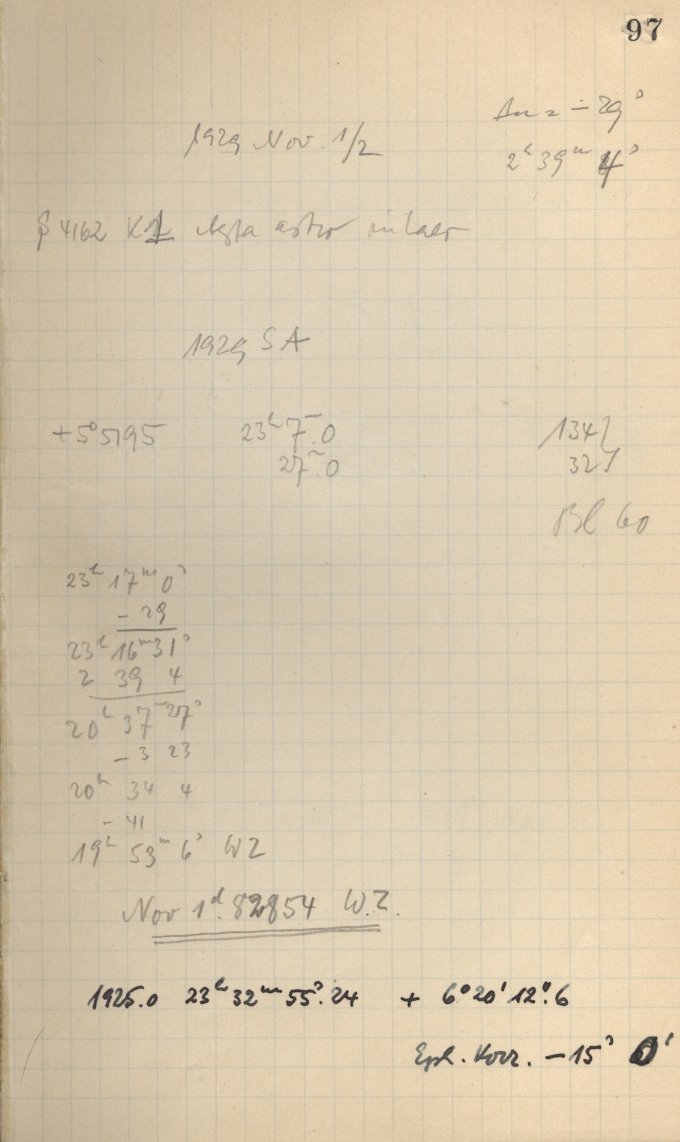 97
Δu = - 29ˢ
1929 Nov. 1/2
2ʰ 39ᵐ 4ˢ
4162 K1 Agfa astro
1929 SA
+5° 5195 23ʰ 7ᵐ.0 134
27ᵐ.0 32
Bl 60
23ʰ 17ᵐ 0ˢ
- 29
23ʰ 16ᵐ 31ˢ
2 39 4
20ʰ 37ᵐ 27ˢ
- 3 23
20ʰ 34 4
- 41
19ʰ 53ᵐ 6ˢ WZ
Nov 1ᵈ.82854 W.Z.
1925.0 23ʰ 32ᵐ 55ˢ.24 + 6° 20' 12".6
Eph. Korr. - 15ˢ 0'